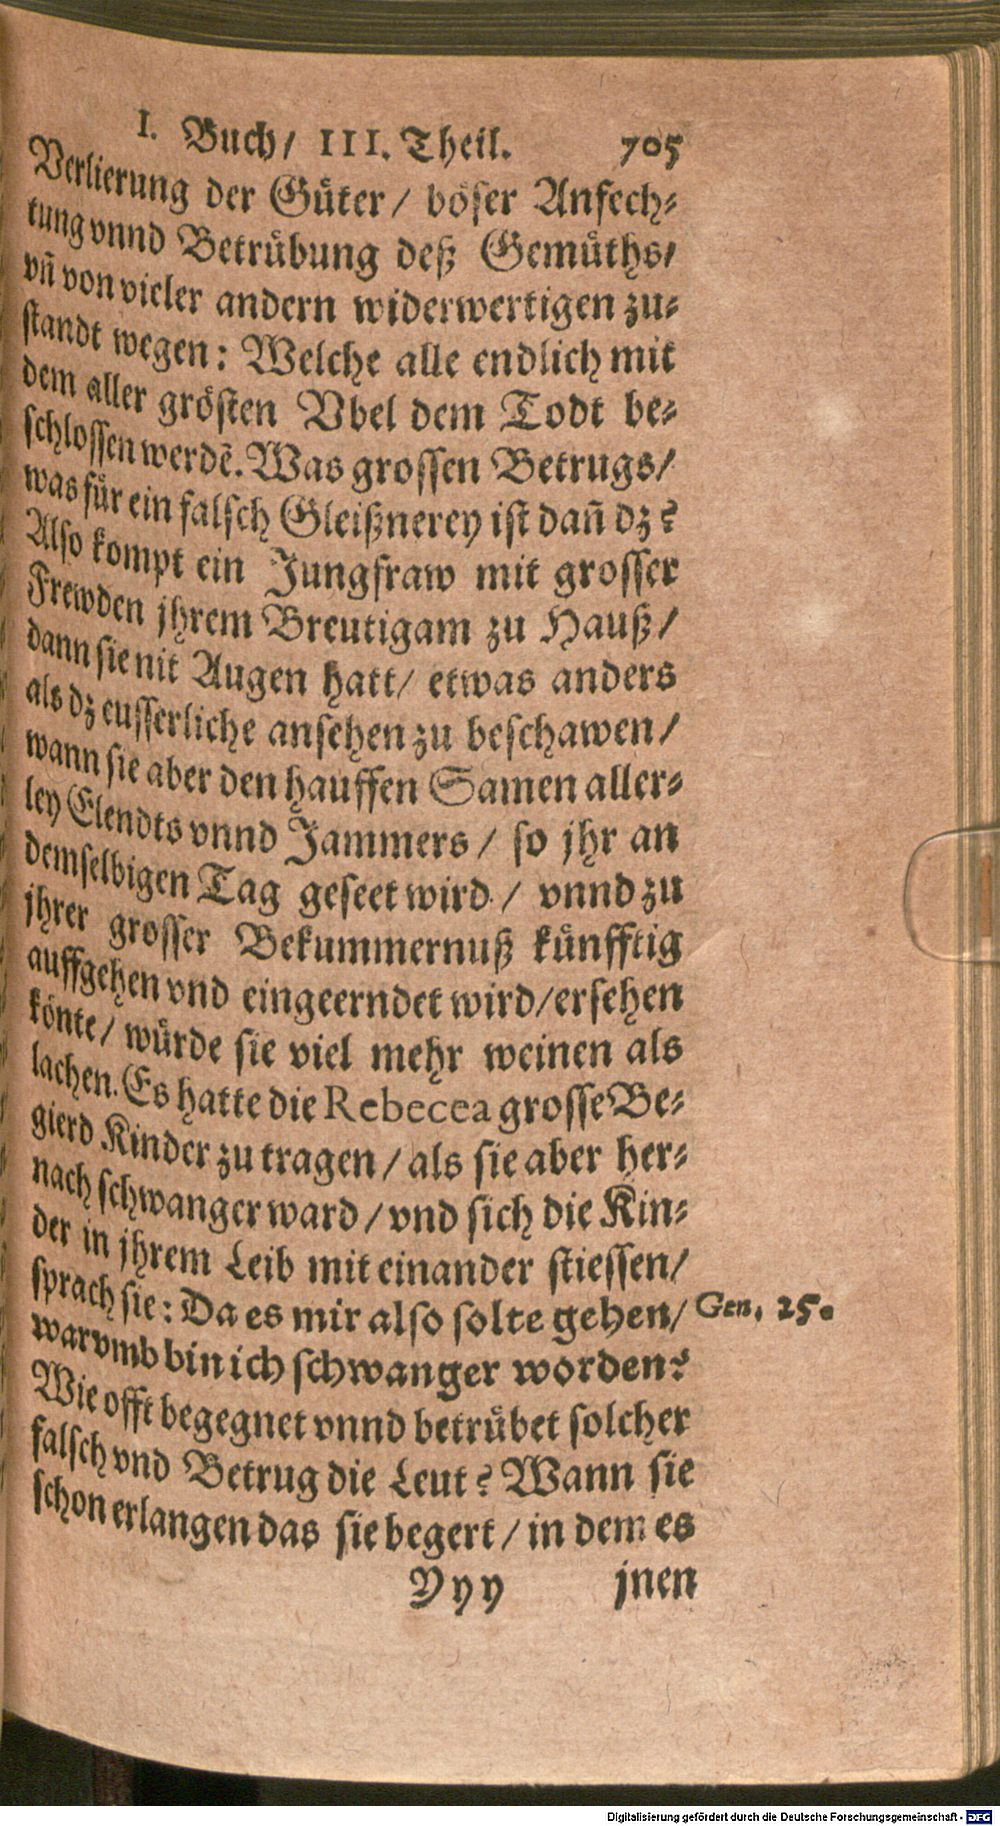 I. Buch/ III. Theil. 705
Verlierung der Güter/ böser Anfech-
tung vnnd Betrübung deß Gemüths/
vñ von vieler andern widerwertigen zu-
standt wegen: Welche alle endlich mit
dem aller grösten Vbel dem Todt be-
schlossen werdē. Was grossen Betrugs/
was für ein falsch Gleißnerey ist dañ dz?
Also kompt ein Jungfraw mit grosser
Frewden jhrem Breutigam zu Hauß/
dann sie nit Augen hatt/ etwas anders
als dz eusserliche ansehen zu beschawen/
wann sie aber den hauffen Samen aller-
ley Elendts vnnd Jammers/ so jhr an
demselbigen Tag geseet wird/ vnnd zu
jhrer grosser Bekummernuß künfftig
auffgehen vnd eingeerndet wird/ersehen
könte/ würde sie viel mehr weinen als
lachen. Es hatte die Rebecea grosse Be-
gierd Kinder zu tragen/ als sie aber her-
nach schwanger ward/ vnd sich die Kin-
der in jhrem Leib mit einander stiessen/
sprach sie: Da es mir also solte gehen/ Gen. 25.
warvmb bin ich schwanger worden?
Wie offt begegnet vnnd betrübet solcher
falsch vnd Betrug die Leut? Wann sie
schon erlangen das sie begert/ in dem es
Yyy jnen
Digitalisierung gefördert durch die Deutsche Forschungsgemeinschaft - DFG